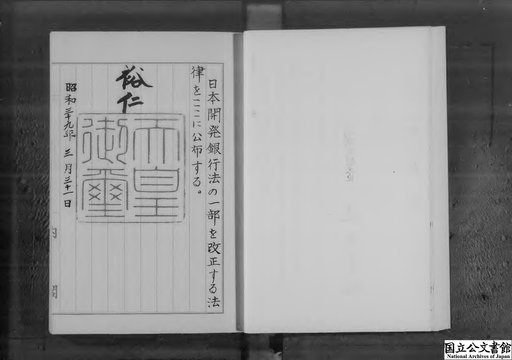 日本開発銀行法の一部を改正する法
律をここに公布する。
裕仁
天皇
御璽
昭和三十九年三月三十一日
国立公文書館
National Archives of Japan